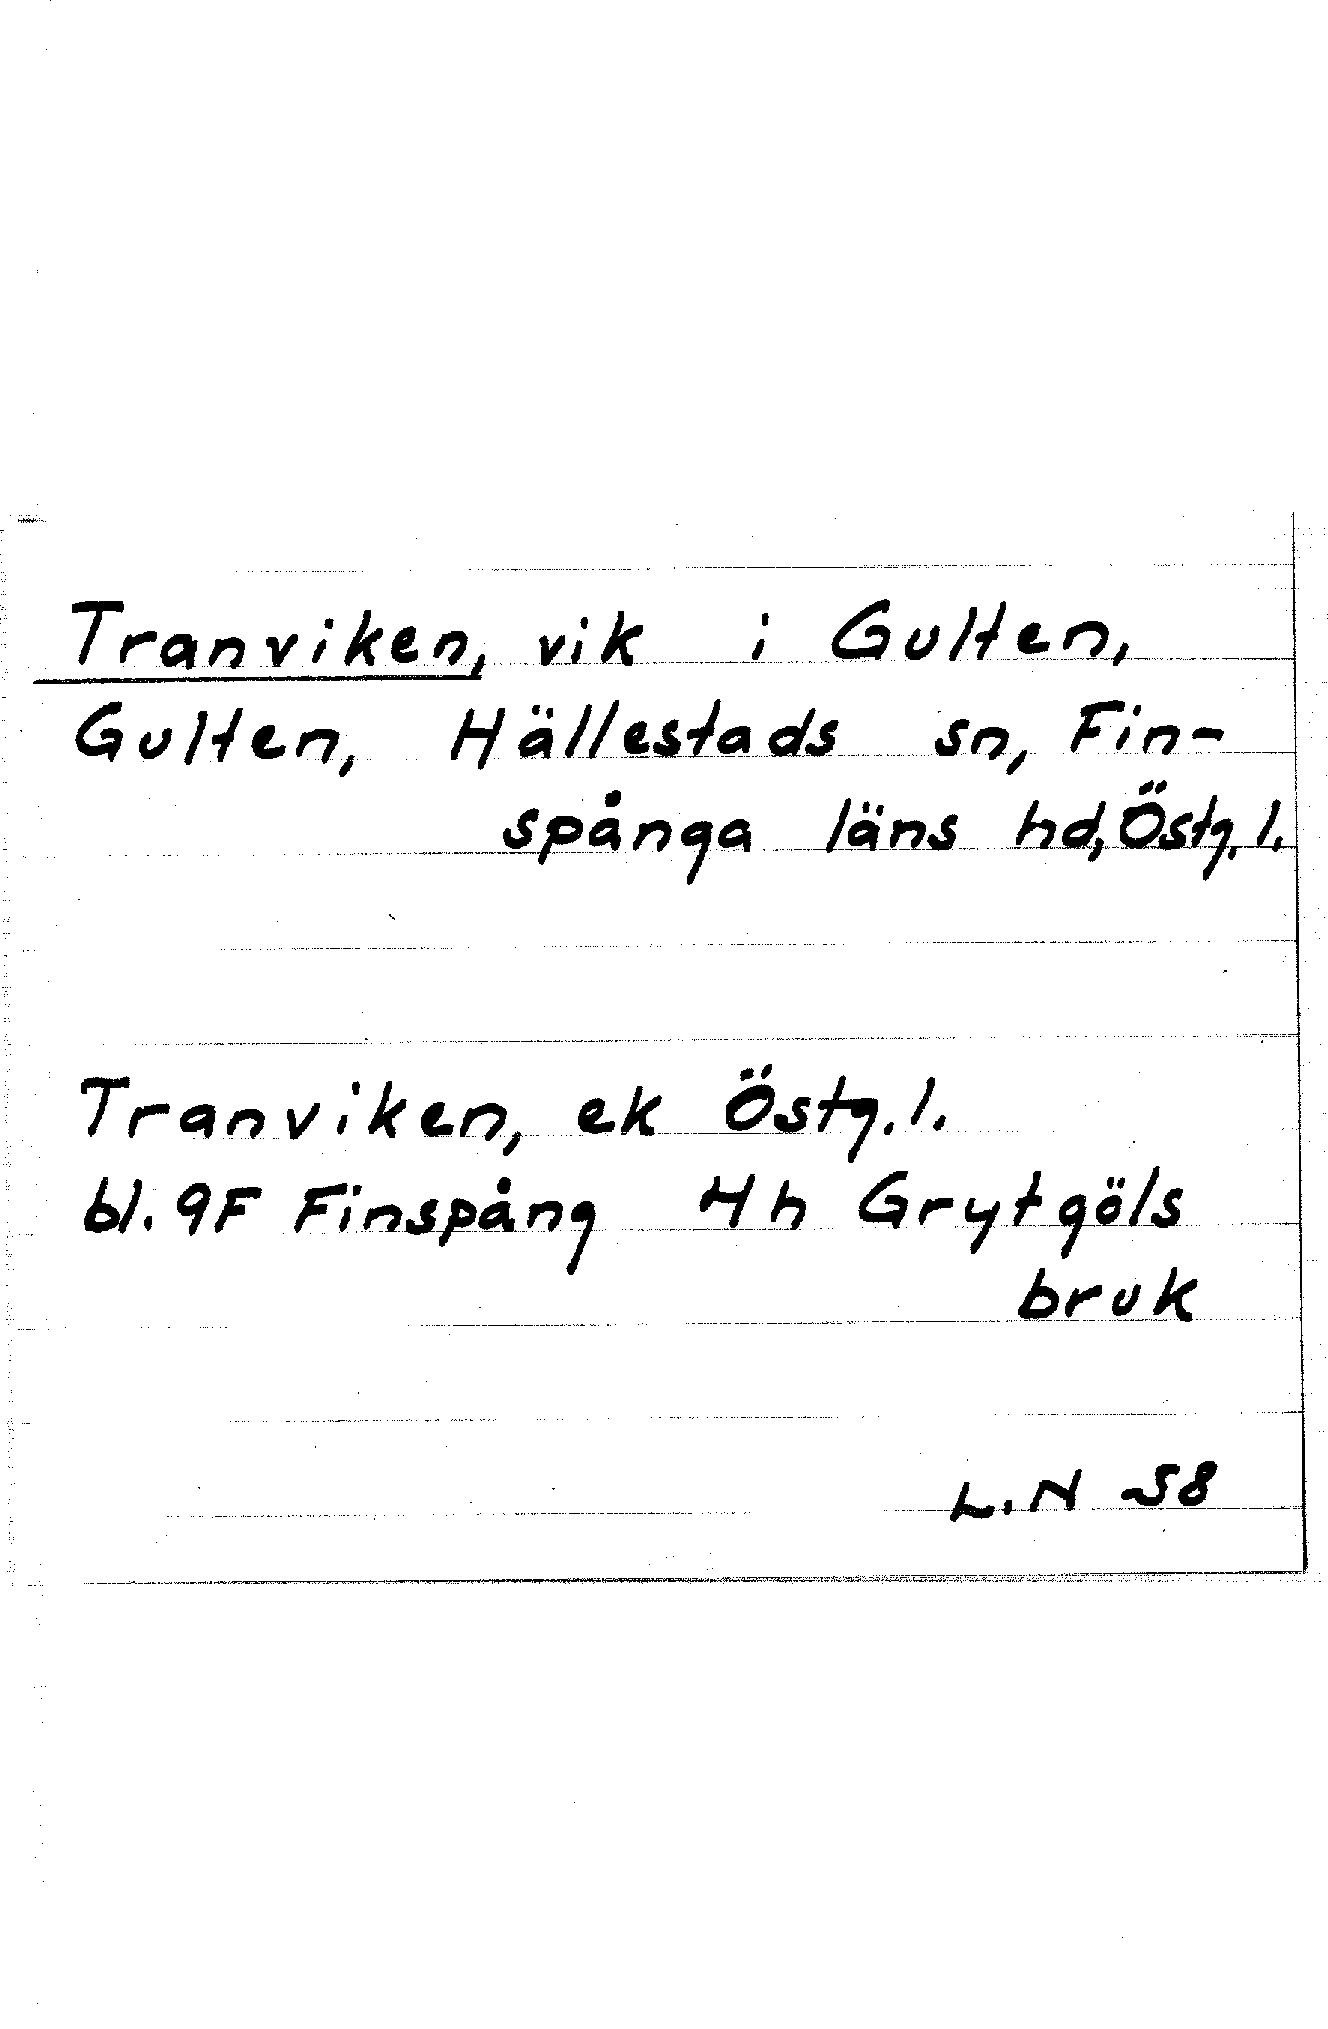 Tranviken, vik i Gulten,
Gulten, Hällestads sn, Fin-
spånga läns hd, Östg. l.
Tranviken, ek Östg. l.
bl. 9F Finspång 4h Grytgöls
bruk
L. N -58